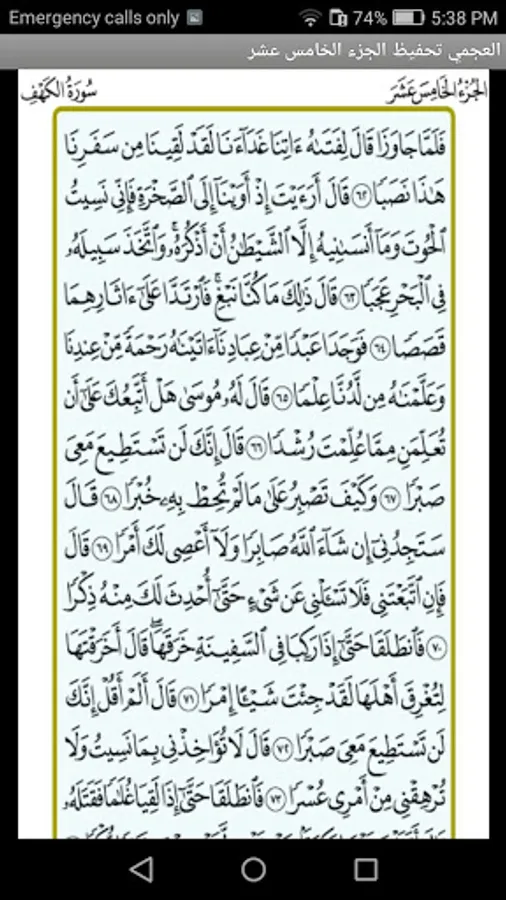 Emergency calls only 74% 5:38 PM
العجمي تحفيظ الجزء الخامس عشر
الجُزْءُ الخَامِسَ عَشَرَ سُورَةُ الكَهْفِ
فَلَمَّا جَاوَزَا قَالَ لِفَتَىٰهُ ءَاتِنَا غَدَآءَنَا لَقَدْ لَقِينَا مِن سَفَرِنَا
هَٰذَا نَصَبًا ٦٢ قَالَ أَرَءَيْتَ إِذْ أَوَيْنَآ إِلَى ٱلصَّخْرَةِ فَإِنِّي نَسِيتُ
ٱلْحُوتَ وَمَآ أَنسَىٰنِيهُ إِلَّا ٱلشَّيْطَٰنُ أَنْ أَذْكُرَهُۥ ۚ وَٱتَّخَذَ سَبِيلَهُۥ
فِي ٱلْبَحْرِ عَجَبًا ٦٣ قَالَ ذَٰلِكَ مَا كُنَّا نَبْغِ ۚ فَٱرْتَدَّا عَلَىٰٓ ءَاثَارِهِمَا
قَصَصًا ٦٤ فَوَجَدَا عَبْدًا مِّنْ عِبَادِنَآ ءَاتَيْنَٰهُ رَحْمَةً مِّنْ عِندِنَا
وَعَلَّمْنَٰهُ مِن لَّدُنَّا عِلْمًا ٦٥ قَالَ لَهُۥ مُوسَىٰ هَلْ أَتَّبِعُكَ عَلَىٰٓ أَن
تُعَلِّمَنِ مِمَّا عُلِّمْتَ رُشْدًا ٦٦ قَالَ إِنَّكَ لَن تَسْتَطِيعَ مَعِيَ
صَبْرًا ٦٧ وَكَيْفَ تَصْبِرُ عَلَىٰ مَا لَمْ تُحِطْ بِهِۦ خُبْرًا ٦٨ قَالَ
سَتَجِدُنِيٓ إِن شَآءَ ٱللَّهُ صَابِرًا وَلَآ أَعْصِي لَكَ أَمْرًا ٦٩ قَالَ
فَإِنِ ٱتَّبَعْتَنِي فَلَا تَسْـَٔلْنِي عَن شَيْءٍ حَتَّىٰٓ أُحْدِثَ لَكَ مِنْهُ ذِكْرًا
٧٠ فَٱنطَلَقَا حَتَّىٰٓ إِذَا رَكِبَا فِي ٱلسَّفِينَةِ خَرَقَهَا ۖ قَالَ أَخَرَقْتَهَا
لِتُغْرِقَ أَهْلَهَا لَقَدْ جِئْتَ شَيْـًٔا إِمْرًا ٧١ قَالَ أَلَمْ أَقُلْ إِنَّكَ
لَن تَسْتَطِيعَ مَعِيَ صَبْرًا ٧٢ قَالَ لَا تُؤَاخِذْنِي بِمَا نَسِيتُ وَلَا
تُرْهِقْنِي مِنْ أَمْرِي عُسْرًا ٧٣ فَٱنطَلَقَا حَتَّىٰٓ إِذَا لَقِيَا غُلَٰمًا فَقَتَلَهُۥ